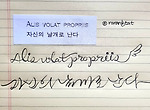 ALIS VOLAT PROPRIIS
자신의 날개로 난다
Alis volat propriis
자신의 날개로 난다